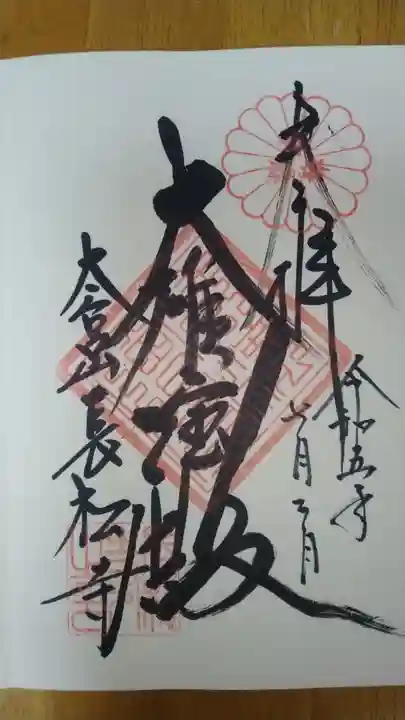 奉拝
令和五年
七月二日
大雄宝殿
大宮山長松寺